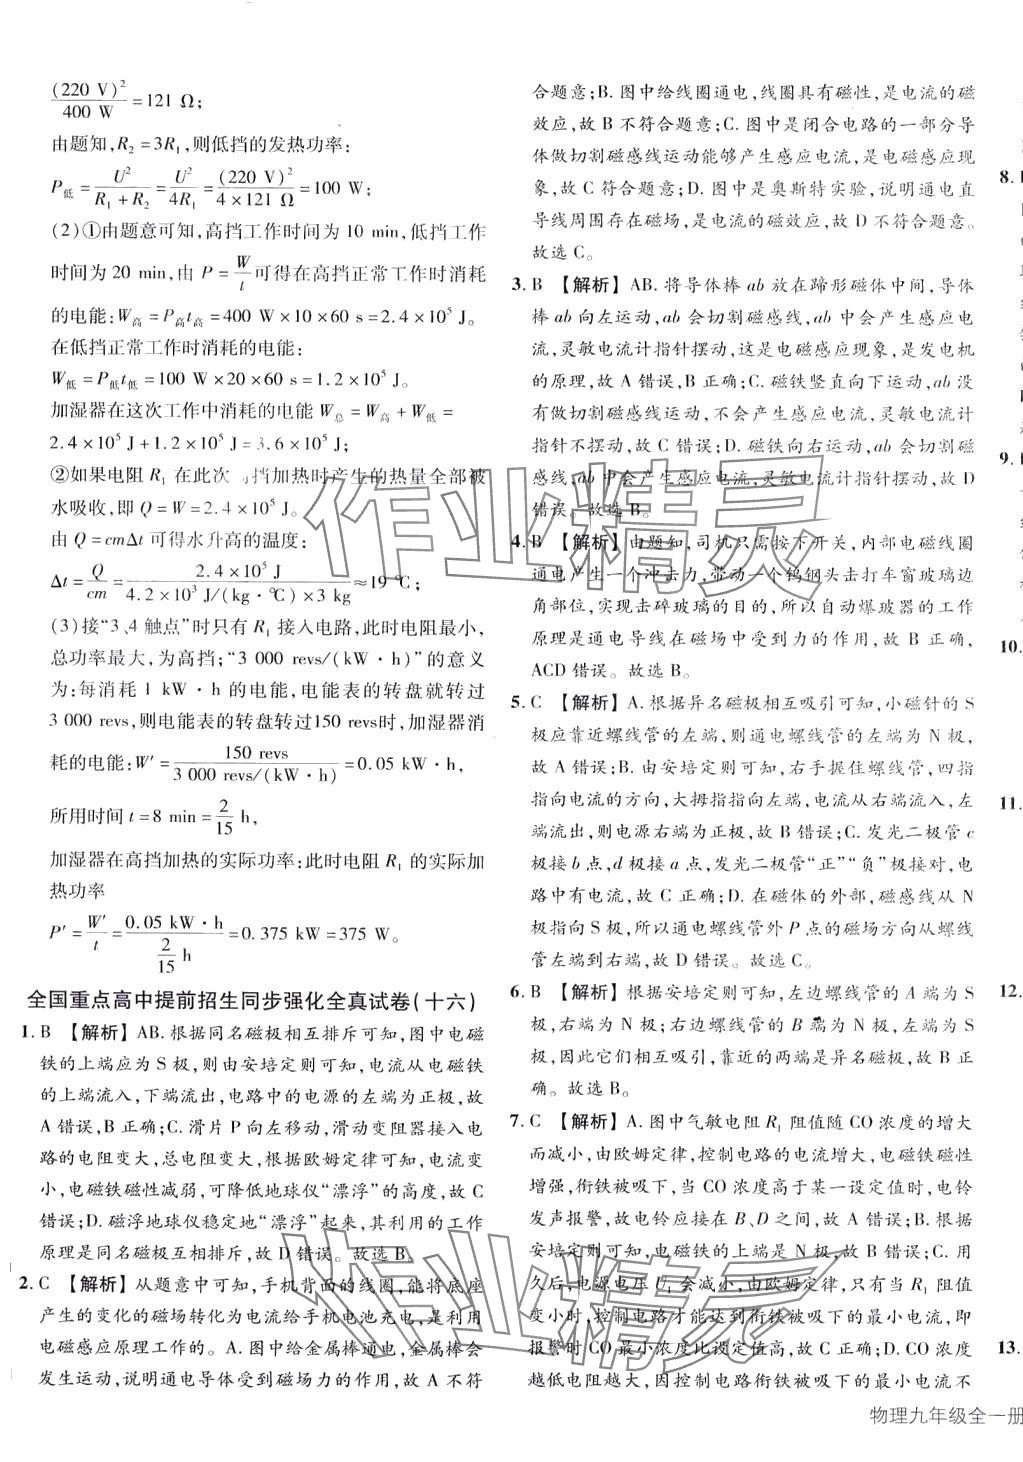 (220 V)²/400 W=121 Ω;
由题知,R₂=3R₁,则低挡的发热功率:
P低=U²/(R₁+R₂)=U²/4R₁=(220 V)²/(4×121 Ω)=100 W;
(2)①由题意可知,高挡工作时间为10 min,低挡工作
时间为20 min,由P=W/t可得在高挡正常工作时消耗
的电能:W高=P高t高=400 W×10×60 s=2.4×10⁵ J。
在低挡正常工作时消耗的电能:
W低=P低t低=100 W×20×60 s=1.2×10⁵ J。
加湿器在这次工作中消耗的电能W总=W高+W低=
2.4×10⁵ J+1.2×10⁵ J=3.6×10⁵ J;
②如果电阻R₁在此次 挡加热时产生的热量全部被
水吸收,即Q=W=2.4×10⁵ J。
由Q=cmΔt可得水升高的温度:
Δt=Q/cm=2.4×10⁵ J/(4.2×10³ J/(kg·℃)×3 kg)≈19 ℃;
(3)接“3、4触点”时只有R₁接入电路,此时电阻最小,
总功率最大,为高挡;“3 000 revs/(kW·h)”的意义
为:每消耗1 kW·h的电能,电能表的转盘就转过
3 000 revs,则电能表的转盘转过150 revs时,加湿器消
耗的电能:W′=150 revs/(3 000 revs/(kW·h))=0.05 kW·h,
所用时间t=8 min=2/15 h,
加湿器在高挡加热的实际功率:此时电阻R₁的实际加
热功率
P′=W′/t=0.05 kW·h/(2/15 h)=0.375 kW=375 W。
全国重点高中提前招生同步强化全真试卷(十六)
1. B 【解析】AB.根据同名磁极相互排斥可知,图中电磁
铁的上端应为S极,则由安培定则可知,电流从电磁铁
的上端流入,下端流出,电路中的电源的左端为正极,故
A错误,B正确;C.滑片P向左移动,滑动变阻器接入电
路的电阻变大,总电阻变大,根据欧姆定律可知,电流变
小,电磁铁磁性减弱,可降低地球仪“漂浮”的高度,故C
错误;D.磁浮地球仪稳定地“漂浮”起来,其利用的工作
原理是同名磁极相互排斥,故D错误。故选B。
2. C 【解析】从题意中可知,手机背面的线圈,能将底座
产生的变化的磁场转化为电流给手机电池充电,是利用
电磁感应原理工作的。A.图中给金属棒通电,金属棒会
发生运动,说明通电导体受到磁场力的作用,故A不符
合题意;B.图中给线圈通电,线圈具有磁性,是电流的磁
效应,故B不符合题意;C.图中是闭合电路的一部分导
体做切割磁感线运动能够产生感应电流,是电磁感应现
象,故C符合题意;D.图中是奥斯特实验,说明通电直
导线周围存在磁场,是电流的磁效应,故D不符合题意。
故选C。
3. B 【解析】AB.将导体棒ab放在蹄形磁体中间,导体
棒ab向左运动,ab会切割磁感线,ab中会产生感应电
流,灵敏电流计指针摆动,这是电磁感应现象,是发电机
的原理,故A错误,B正确;C.磁铁竖直向下运动,ab没
有做切割磁感线运动,不会产生感应电流,灵敏电流计
指针不摆动,故C错误;D.磁铁向右运动,ab会切割磁
感线,ab中会产生感应电流,灵敏电流计指针摆动,故D
错误。故选B。
4. B 【解析】由题知,司机只需按下开关,内部电磁线圈
通电产生一个冲击力,带动一个钨钢头击打车窗玻璃边
角部位,实现击碎玻璃的目的,所以自动爆玻器的工作
原理是通电导线在磁场中受到力的作用,故B正确,
ACD错误。故选B。
5. C 【解析】A.根据异名磁极相互吸引可知,小磁针的S
极应靠近螺线管的左端,则通电螺线管的左端为N极,
故A错误;B.由安培定则可知,右手握住螺线管,四指
指向电流的方向,大拇指指向左端,电流从右端流入,左
端流出,则电源右端为正极,故B错误;C.发光二极管c
极接b点,d极接a点,发光二极管“正”“负”极接对,电
路中有电流,故C正确;D.在磁体的外部,磁感线从N
极指向S极,所以通电螺线管外P点的磁场方向从螺线
管左端到右端,故D错误。故选C。
6. B 【解析】根据安培定则可知,左边螺线管的A端为S
极,右端为N极;右边螺线管的B端为N极,左端为S
极,因此它们相互吸引,靠近的两端是异名磁极,故B正
确。故选B。
7. C 【解析】A.图中气敏电阻R₁阻值随CO浓度的增大
而减小,由欧姆定律,控制电路的电流增大,电磁铁磁性
增强,衔铁被吸下,当CO浓度高于某一设定值时,电铃
发声报警,故电铃应接在B、D之间,故A错误;B.根据
安培定则可知,电磁铁的上端为N极,故B错误;C.用
久后,电源电压U₁会减小,由欧姆定律,只有当R₁阻值
变小时,控制电路才能达到衔铁被吸下的最小电流,即
报警时CO最小浓度比设定值高,故C正确;D.CO浓度
越低电阻越大,因控制电路衔铁被吸下的最小电流不
8.
9.
10.
11.
12.
13.
物理九年级全一册
作业精灵
作业精灵